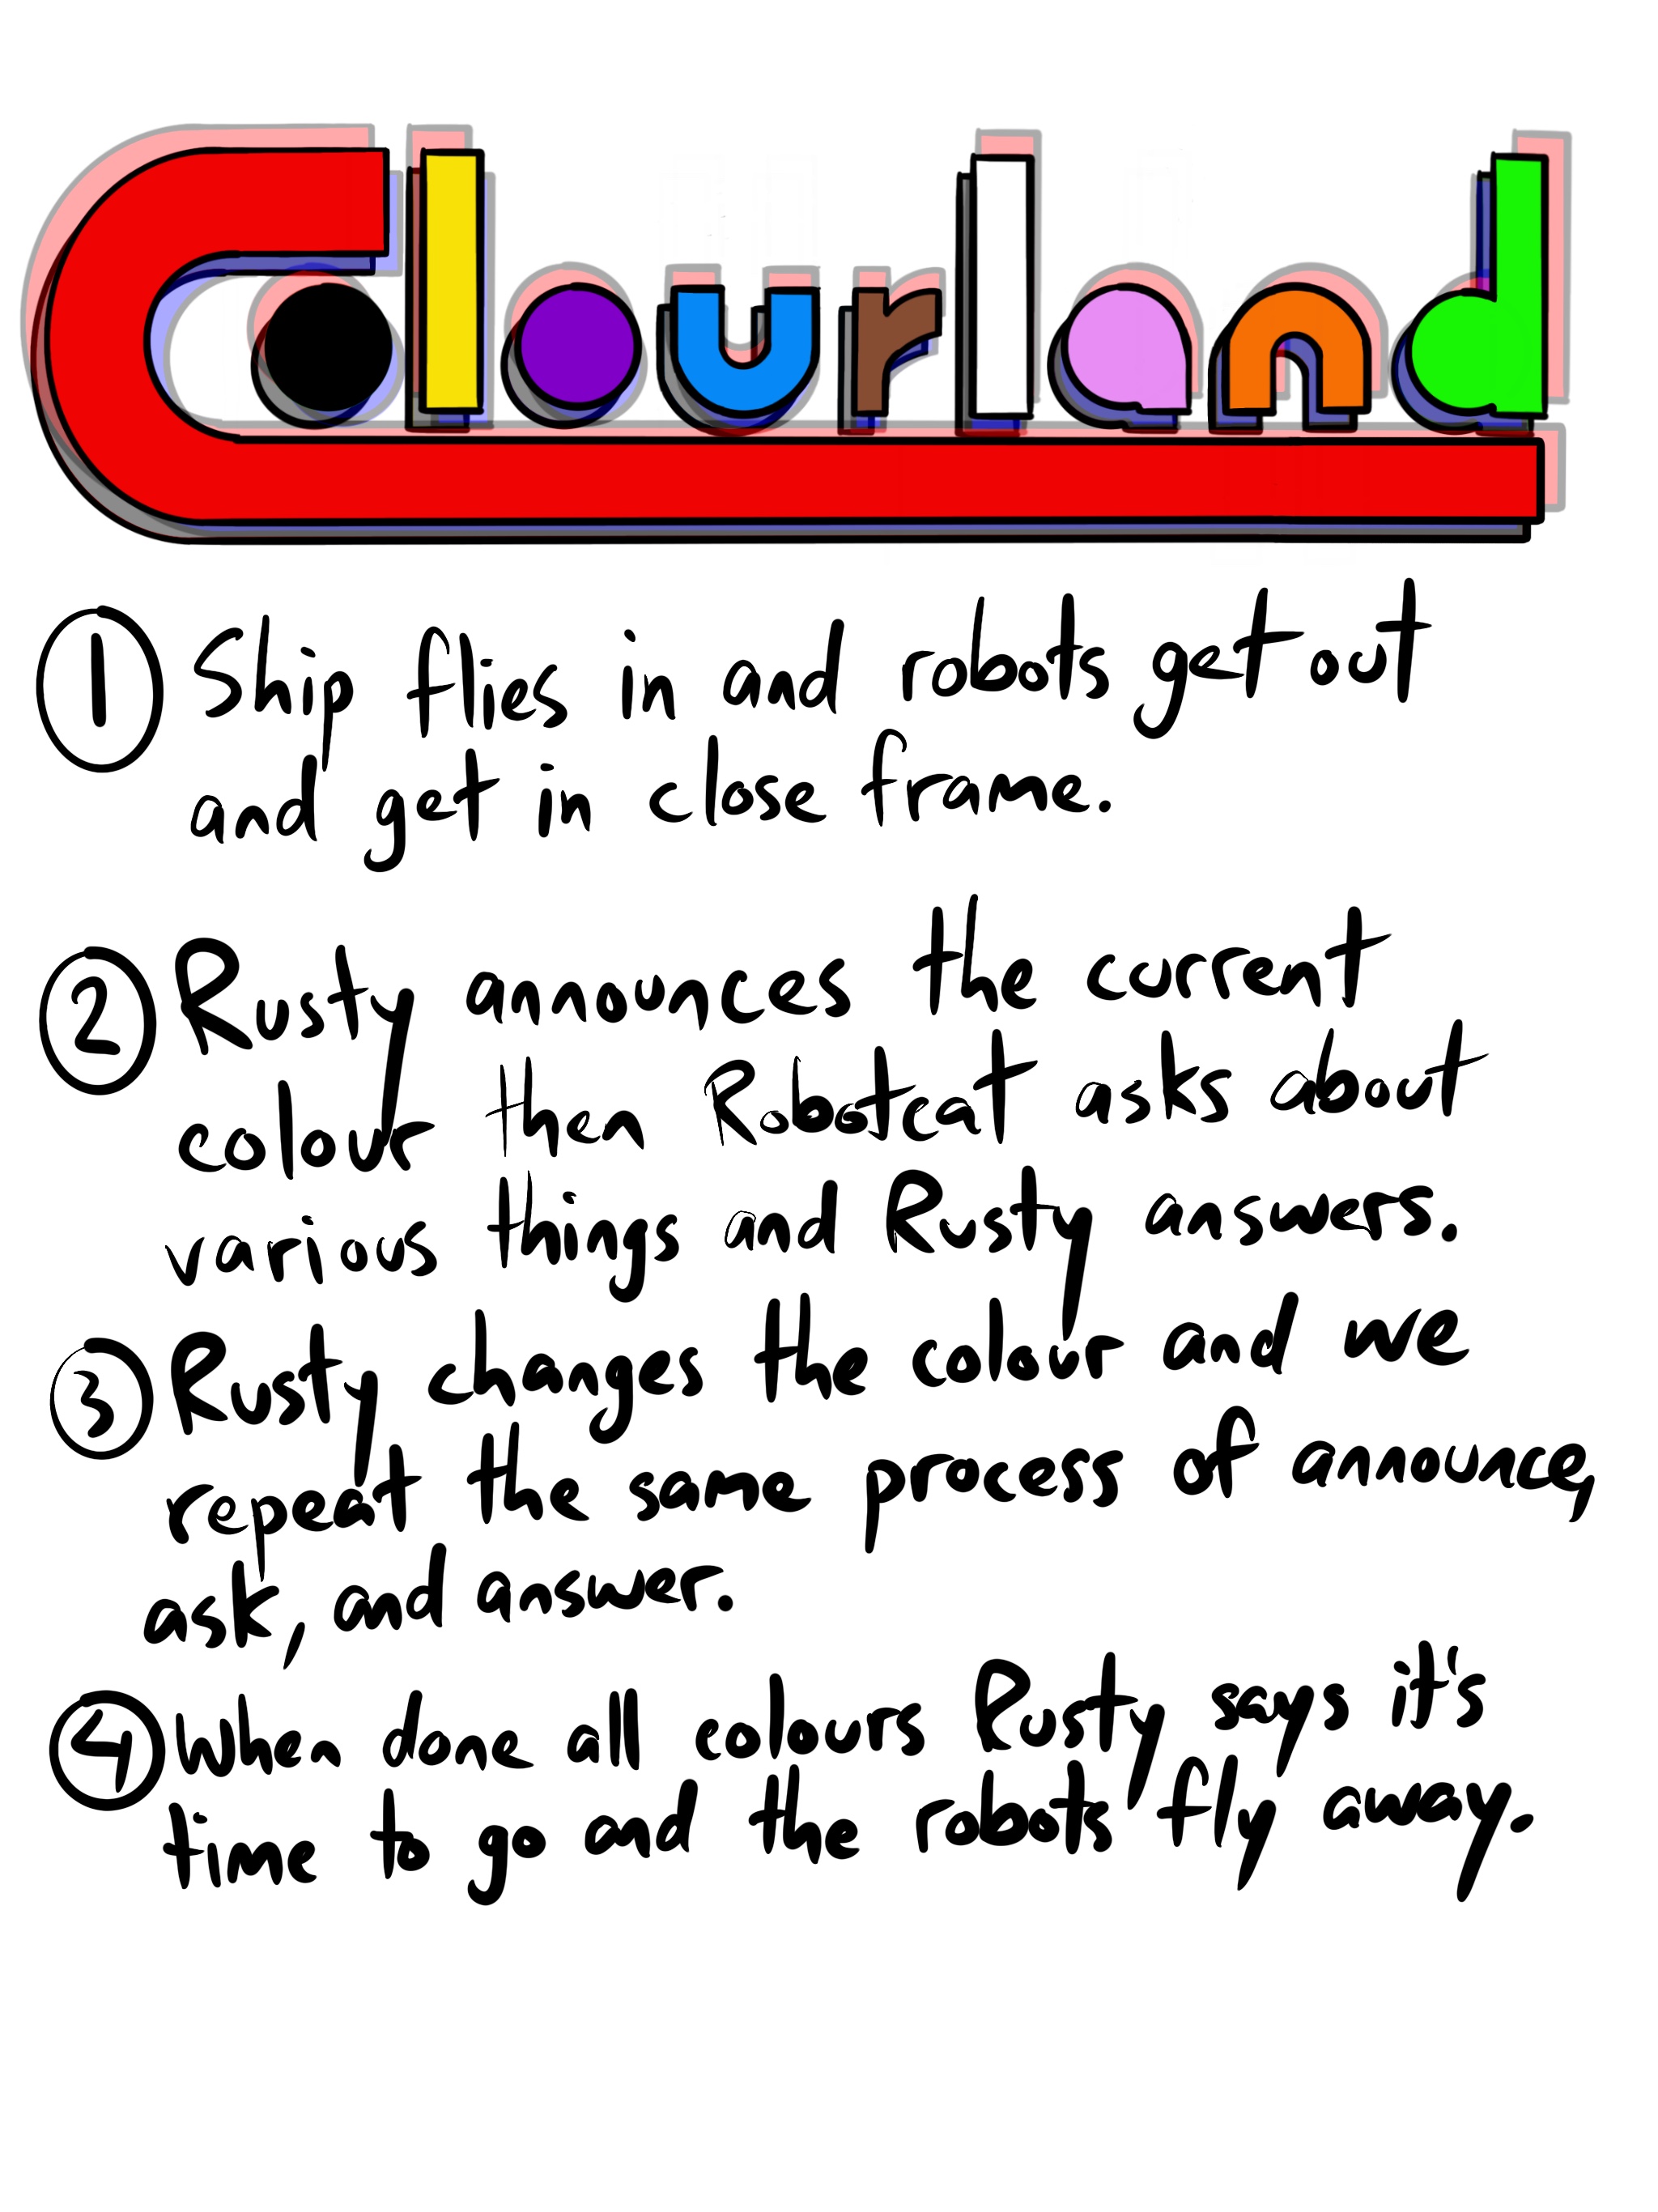 Colourland
1 Ship flies in and robots get out
and get in close frame.
2 Rusty announces the current
colour then Robotcat asks about
various things and Rusty answers.
3 Rusty changes the colour and we
repeat the same process of announce,
ask, and answer.
4 When done all colours Rusty says it's
time to go and the robots fly away.